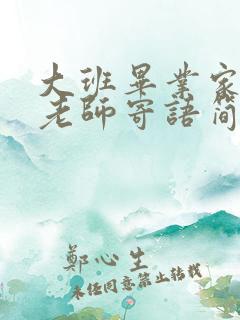 大班畢業家
老師寄語簡
鄭心生
未经同意禁止转载